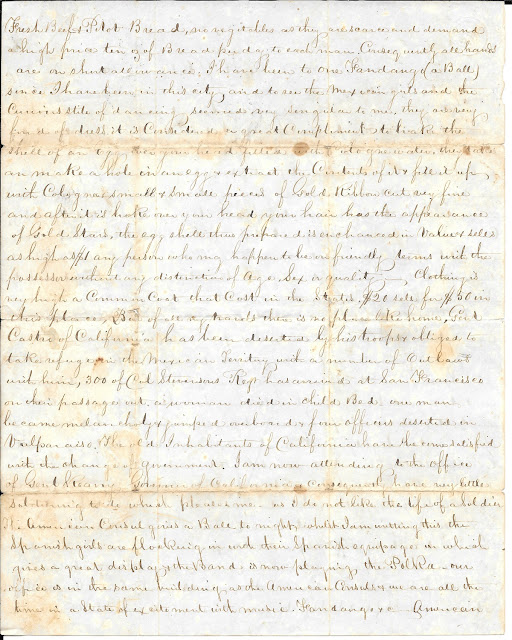 Fresh Beef & Pilot Bread, no vegitables as they are scarce and demand
a high price ten oz of Bread per day to each man. Consequently all hands
are on short allowance. I have been to one Fandango (a Ball)
since I have been in this city, and to see the Mexican girls and the
Curious stile of dancing seemed very singular to me, they are very
fond of dress it is Considered a great Compliment to brake the
shell of an Egg over your head filled with Cologne water, they
an make a hole in an egg & extract the Contents of it & fill it up
with Cologne, small & small pieces of Gold Ribbon cut very fine
and after it is broke over your head your hair has the appearance
of Gold Stars, the egg shell thus prepared is enchanced in Value & sells
as high as $1 any person who may happen to be on friendly terms with the
possessor without any distinction of Age, Sex or quality. Clothing is
very high a Common Coat that Cost in the States $20 sells for $50 in
this place, & But after all there is no place like home, Genl
Castro of California has been deserted by his troops & obliged to
take refuge in the Mexican Territory with a number of Outlaws
with him, 300 of Col Stevensons Regt has arrived at San Francisco
on their passage out, a woman died in Child Bed, one man
became melancholy & jumped overboard & four officers deserted in
Valparaiso. The old Inhabitants of California have become satisfied
with the change of government. I am now attending to the office
of Genl Kearny Governor of California & Consequently have very little
soldiering to do which pleases me as I do not like the life of a soldier
The American Consul gives a Ball to night, whilst I am writing this, the
Spanish girls are flocking in with their Spanish equipage in which
gives a great display, the Band is now playing the Polka - our
office is in the same building as the American Consuls & we are all the
time in a State of excitement with music Fandango &c - American